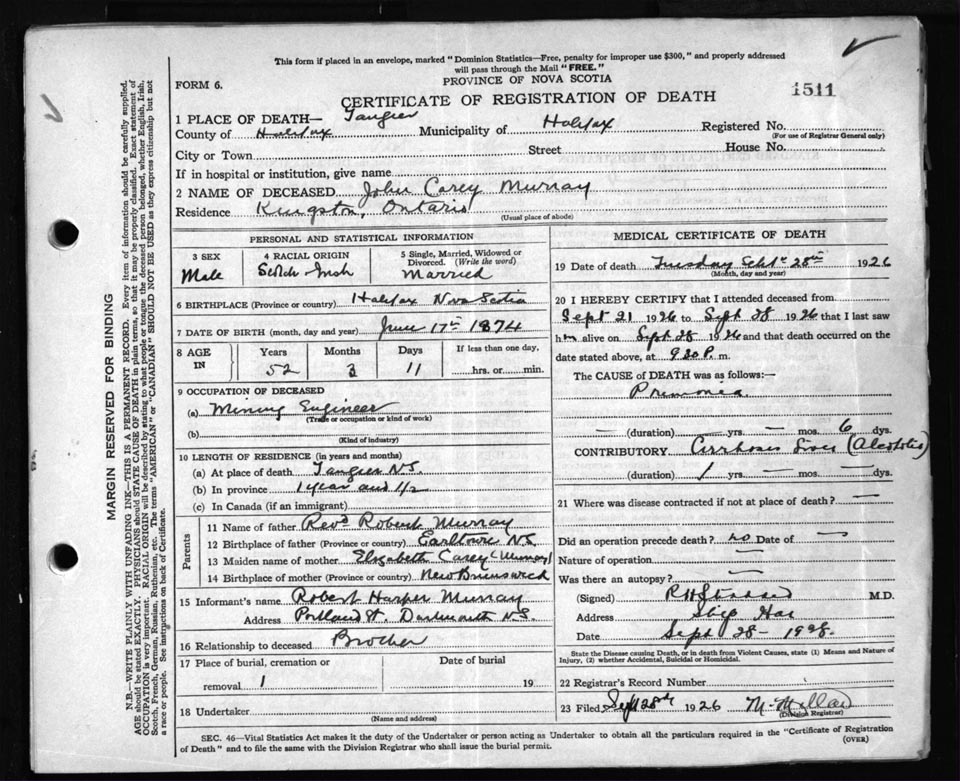 This form if placed in an envelope, marked "Dominion Statistics—Free, penalty for improper use $300," and properly addressed
will pass through the Mail "FREE."
FORM 6.
PROVINCE OF NOVA SCOTIA
1511
CERTIFICATE OF REGISTRATION OF DEATH
1 PLACE OF DEATH— Tangier
County of Halifax Municipality of Halifax Registered No.
(For use of Registrar General only)
City or Town Street House No.
If in hospital or institution, give name
2 NAME OF DECEASED John Carey Murray
Residence Kingston, Ontario
(Usual place of abode)
PERSONAL AND STATISTICAL INFORMATION
3 SEX
Male
4 RACIAL ORIGIN
Scotch-Irish
5 Single, Married, Widowed or
Divorced. (Write the word)
Married
6 BIRTHPLACE (Province or country) Halifax Nova Scotia
7 DATE OF BIRTH (month, day and year) June 17th 1874
8 AGE
IN
Years
52
Months
3
Days
11
If less than one day,
hrs. or min.
9 OCCUPATION OF DECEASED
(a) Mining Engineer
(Trade or occupation or kind of work)
(b)
(Kind of industry)
10 LENGTH OF RESIDENCE (in years and months)
(a) At place of death Tangier N.S.
(b) In province 1 year and 1/2
(c) In Canada (if an immigrant)
Parents
11 Name of father Revd Robert Murray
12 Birthplace of father (Province or country) Earltown N.S.
13 Maiden name of mother Elizabeth Carey (Murray)
14 Birthplace of mother (Province or country) New Brunswick
15 Informant's name Robert Harper Murray
Address Portland St. Dartmouth N.S.
16 Relationship to deceased Brother
17 Place of burial, cremation or Date of burial
removal 1 19
18 Undertaker
(Name and address)
MEDICAL CERTIFICATE OF DEATH
19 Date of death Tuesday Sept. 28th 1926
(Month, day and year)
20 I HEREBY CERTIFY that I attended deceased from
Sept 21 1926 to Sept 28 1926 that I last saw
him alive on Sept 28 1926 and that death occurred on the
date stated above, at 9 30 P. m.
The CAUSE of DEATH was as follows:—
— (duration) — yrs. — mos. 6 dys.
CONTRIBUTORY Cirrhosis Liver
(duration) 1 yrs — mos — dys.
21 Where was disease contracted if not at place of death? —
Did an operation precede death? no Date of —
Nature of operation —
Was there an autopsy? —
(Signed) M.D.
Address Ship Har
Date Sept 28 - 1928.
State the Disease causing Death, or in death from Violent Causes, state (1) Means and Nature of
Injury, (2) whether Accidental, Suicidal or Homicidal.
22 Registrar's Record Number
23 Filed Sept 28th 1926 McMillan
(Division Registrar)
SEC. 46—Vital Statistics Act makes it the duty of the Undertaker or person acting as Undertaker to obtain all the particulars required in the "Certificate of Registration
of Death" and to file the same with the Division Registrar who shall issue the burial permit. (OVER)
MARGIN RESERVED FOR BINDING
N.B.—WRITE PLAINLY WITH UNFADING INK—THIS IS A PERMANENT RECORD. Every item of information should be carefully supplied.
AGE should be stated EXACTLY. PHYSICIANS should STATE CAUSE OF DEATH in plain terms, so that it may be properly classified. Exact statement of
OCCUPATION is very important. RACIAL ORIGIN will be described by stating to what people or tongue the deceased person belonged, whether English, Irish,
Scotch, French, German, Russian, Ruthenian, etc. The terms "AMERICAN" or "CANADIAN" SHOULD NOT BE USED as they express citizenship but not
a race or people. See instructions on back of Certificate.